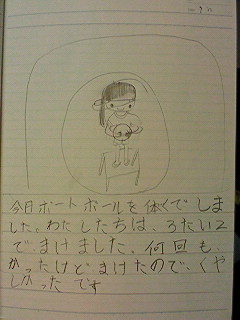 今日ポートボールを体くでしま
した。わたしたちは、3たい2
でまけました。何回も
かったけど、まけたので、くや
しかったです